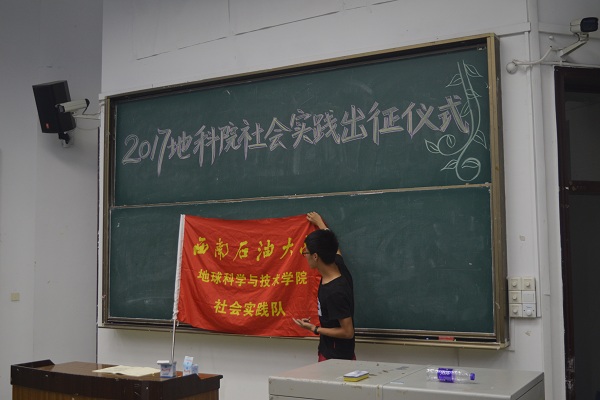 2017地科院社会实践出征仪式
西南石油大
地球科学与技术学院
社会实践队